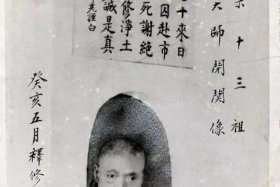 宗十三祖
大師閉關像
十來日
囚赴市
死謝絕
修淨土
誠是真
光謹白
癸亥五月釋修